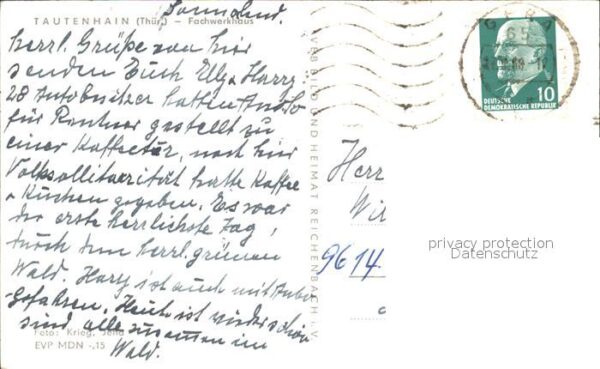 Sonnabend.
TAUTENHAIN (Thür.) – Fachwerkhaus
herrl. Grüße von hier
senden Euch Elly + Harry
28 Autobesitzer hatten Autos
für Rentner gestellt zu
einer Kaffeetour, nach hier
Volkssolidarität hatte Kaffee
+ Kuchen gegeben. Es war
der erste herrlichste Tag,
durch den herrl. grünen
Wald. Harry ist auch mit Auto
gefahren. Heute ist wieder schön
sind alle zusammen im
Wald.
Foto: Krieg, Jena
EVP MDN -,15
BILD UND HEIMAT REICHENBACH i. V.
GERA
65
10
DEUTSCHE
DEMOKRATISCHE REPUBLIK
Herr
Wil
9614
privacy protection
Datenschutz